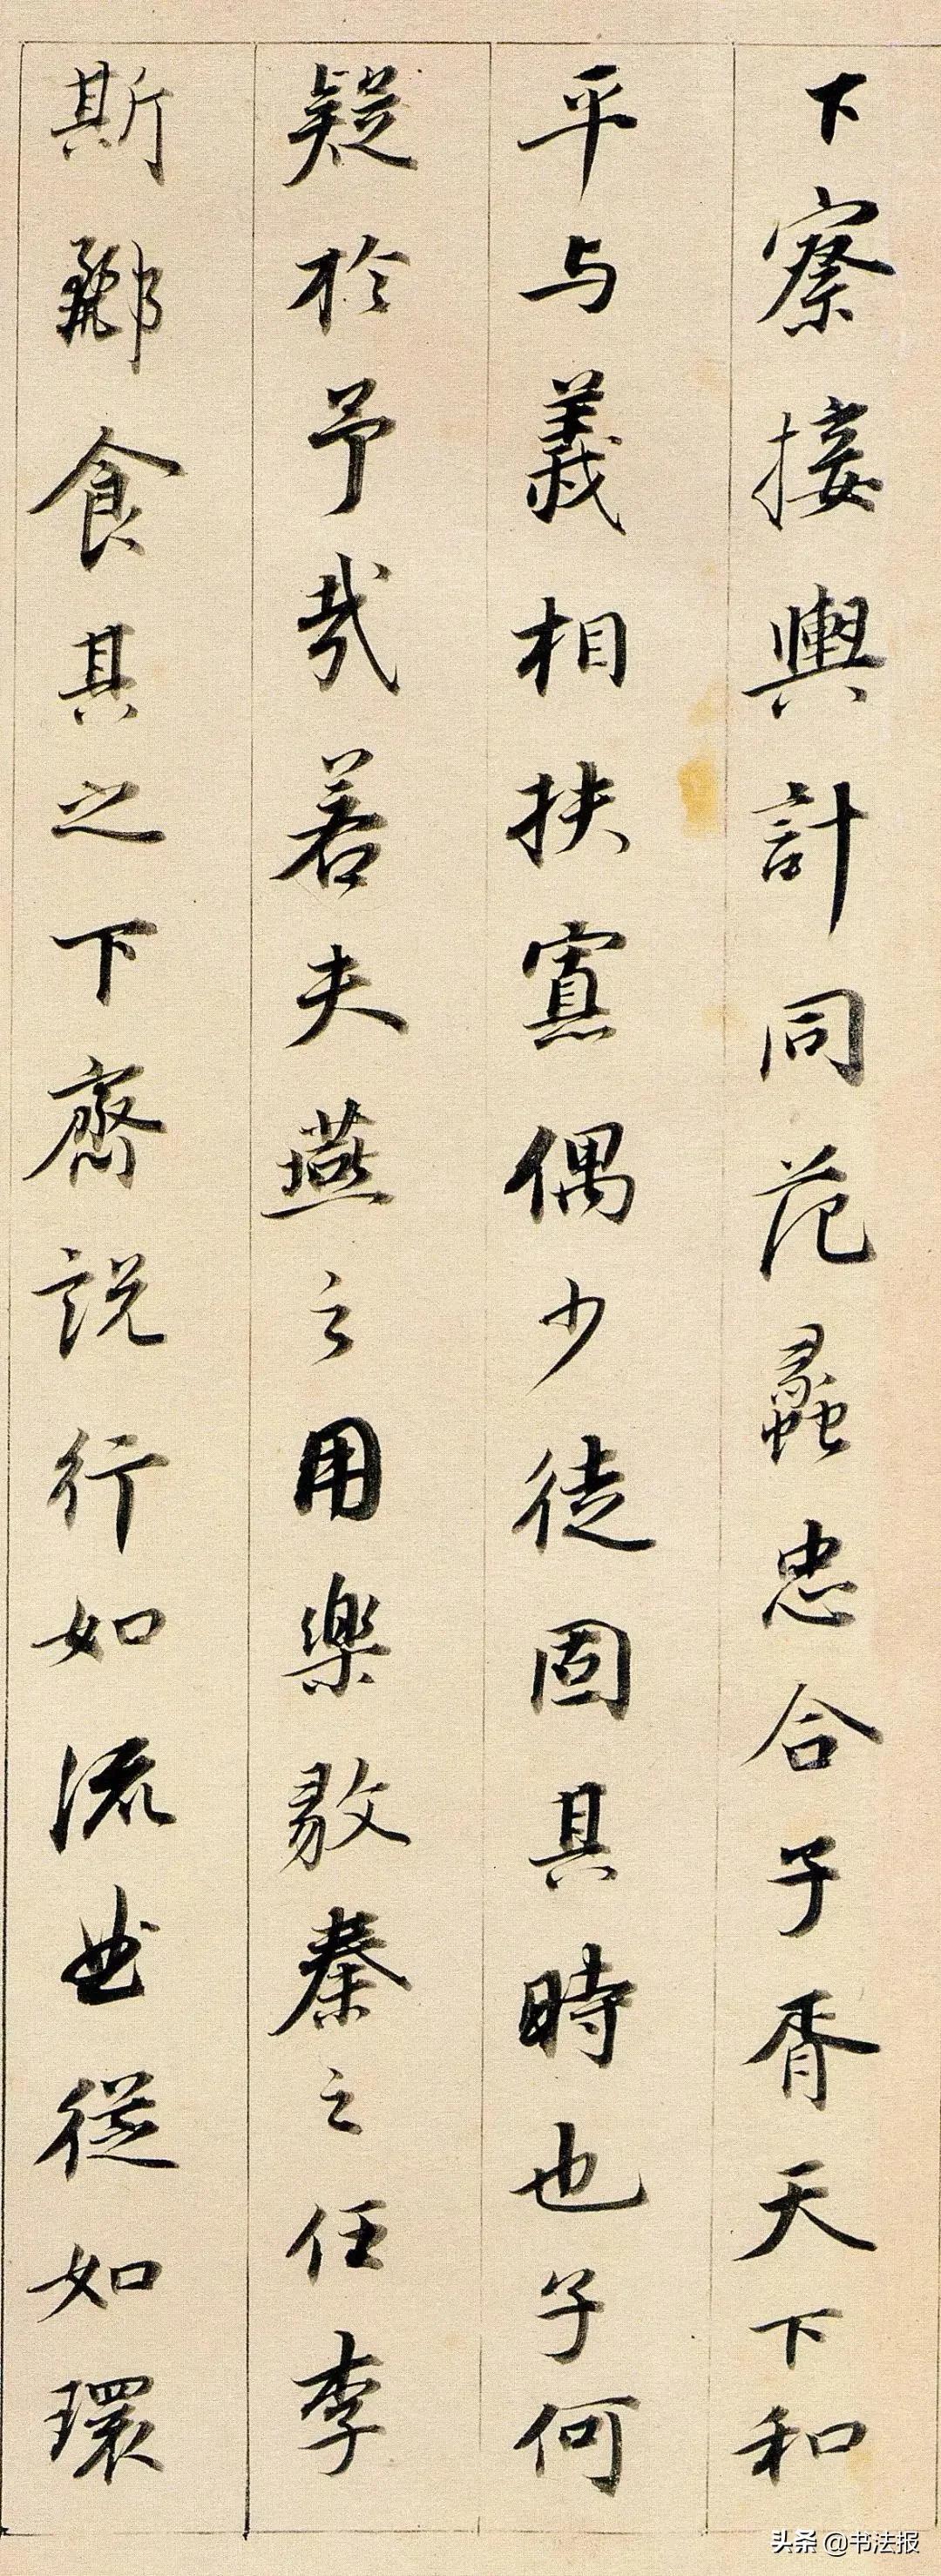 下察接輿計同范蠡忠合子胥天下和
平与義相扶寡偶少徒固其時也子何
疑於予哉若夫燕之用樂毅秦之任李
斯酈食其之下齊說行如流曲從如環
头条 @书法报